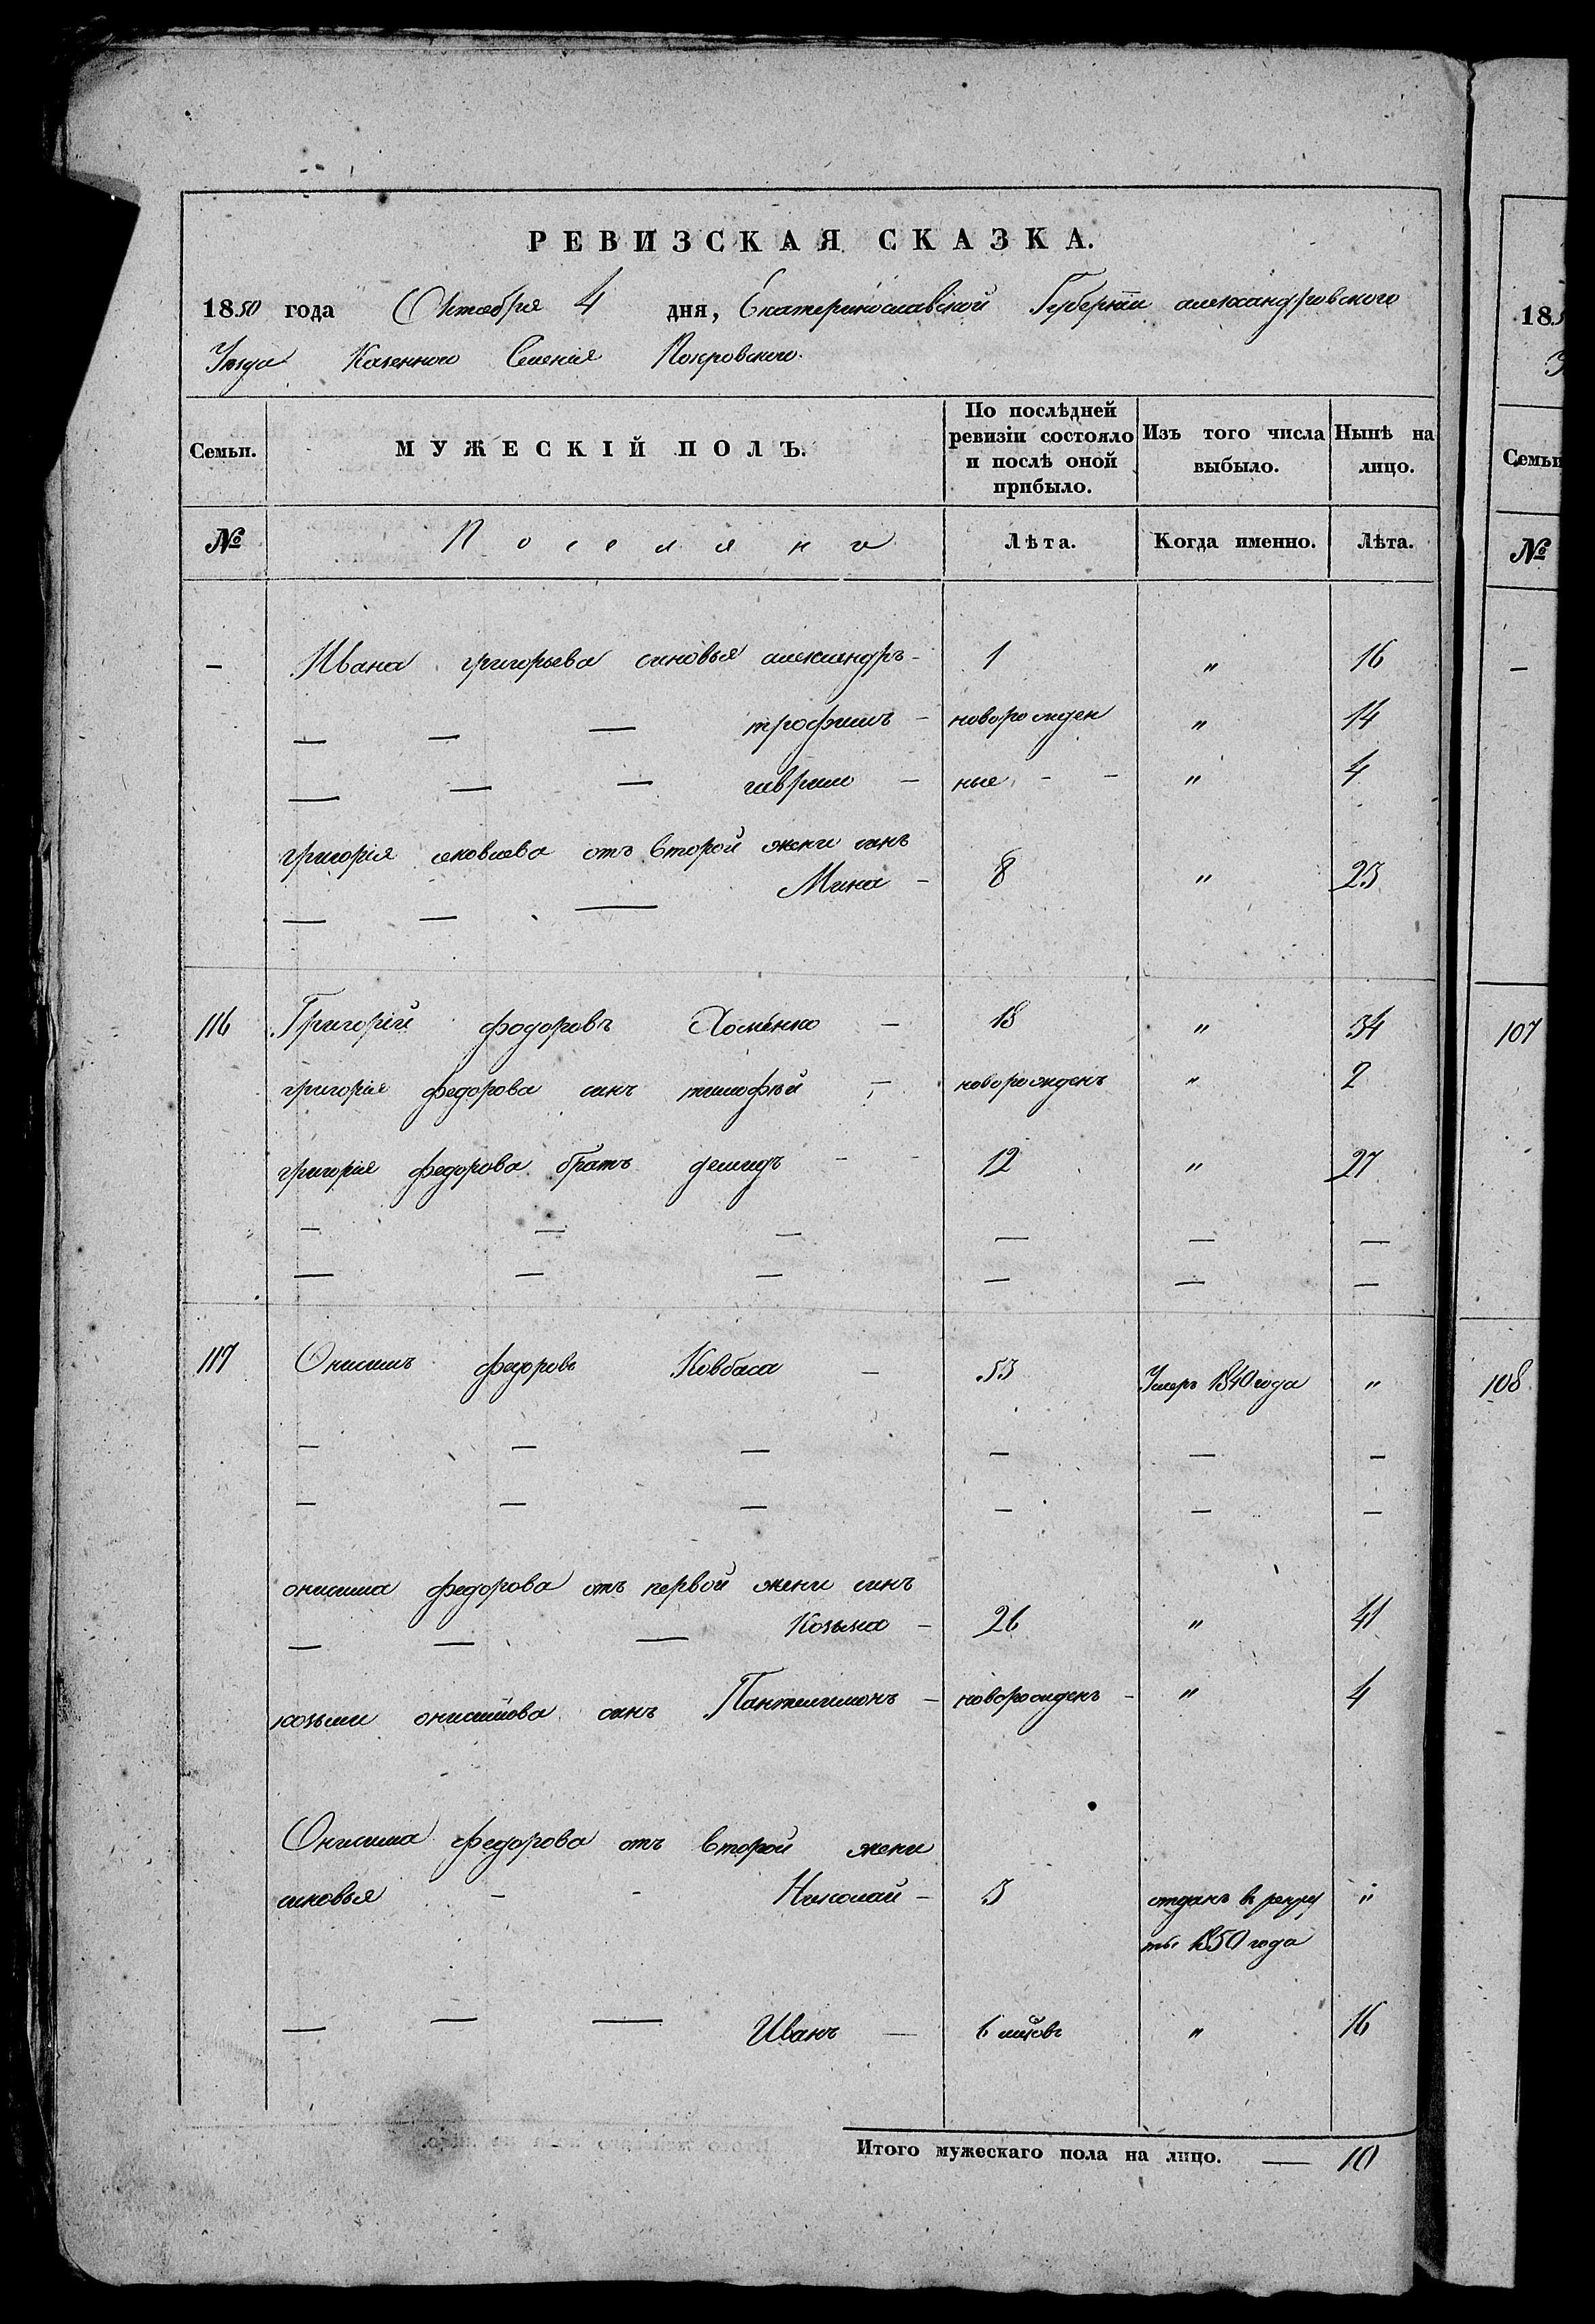 РЕВИЗСКАЯ СКАЗКА.
1850 года Октября 4 дня, Екатеринославской Губерніи александровского
Уезда Казенного Селенія Покровского.
Семьи. МУЖЕСКІЙ ПОЛЪ. По послѣдней ревизіи состояло и послѣ оной прибыло. Изъ того числа выбыло. Нынѣ на лицо.
№ Поселяне Лѣта. Когда именно. Лѣта.
— Ивана григорьева синовья александръ - 1 " 16
— — — трофимъ - новорожден " 14
— — — гаврило - ные - - " 4
григорія яковлева отъ второй жени синъ
— — — Мина - 8 " 23
116 Григорій фодоровъ Хоменко - 18 " 34
григорія федорова синъ тимофѣй - новорожденъ " 2
григорія федорова братъ демидъ - - 12 " 27
— — — — — —
— — — — — —
117 Онисимъ федоровъ Ковбаса - 53 Умеръ 1840 года "
— — — — — —
— — — — — —
онисима федорова отъ первой жени синъ
— — — Козьма - 26 " 41
козьми онисимова синъ Пантелимонъ - новорожденъ - " 4
Онисима федорова отъ второй жени
синовья - - Николай - 3 отданъ в рекру "
ты 1850 года
— — — Иванъ — 6 мцовъ " 16
Итого мужескаго пола на лицо. — 10
185
У
Семьи
№
—
107
108